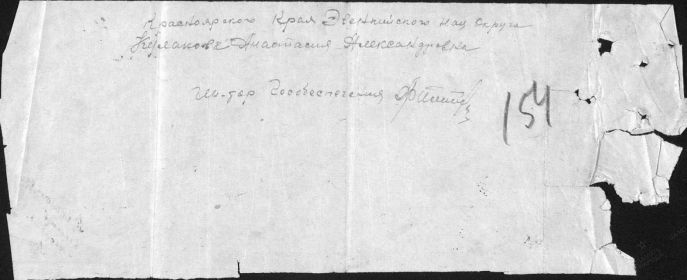 Красноярского Края Эвенкийского нац округа
Кулакова Анастасия Александровна
Ин-тор Гособеспечения
154